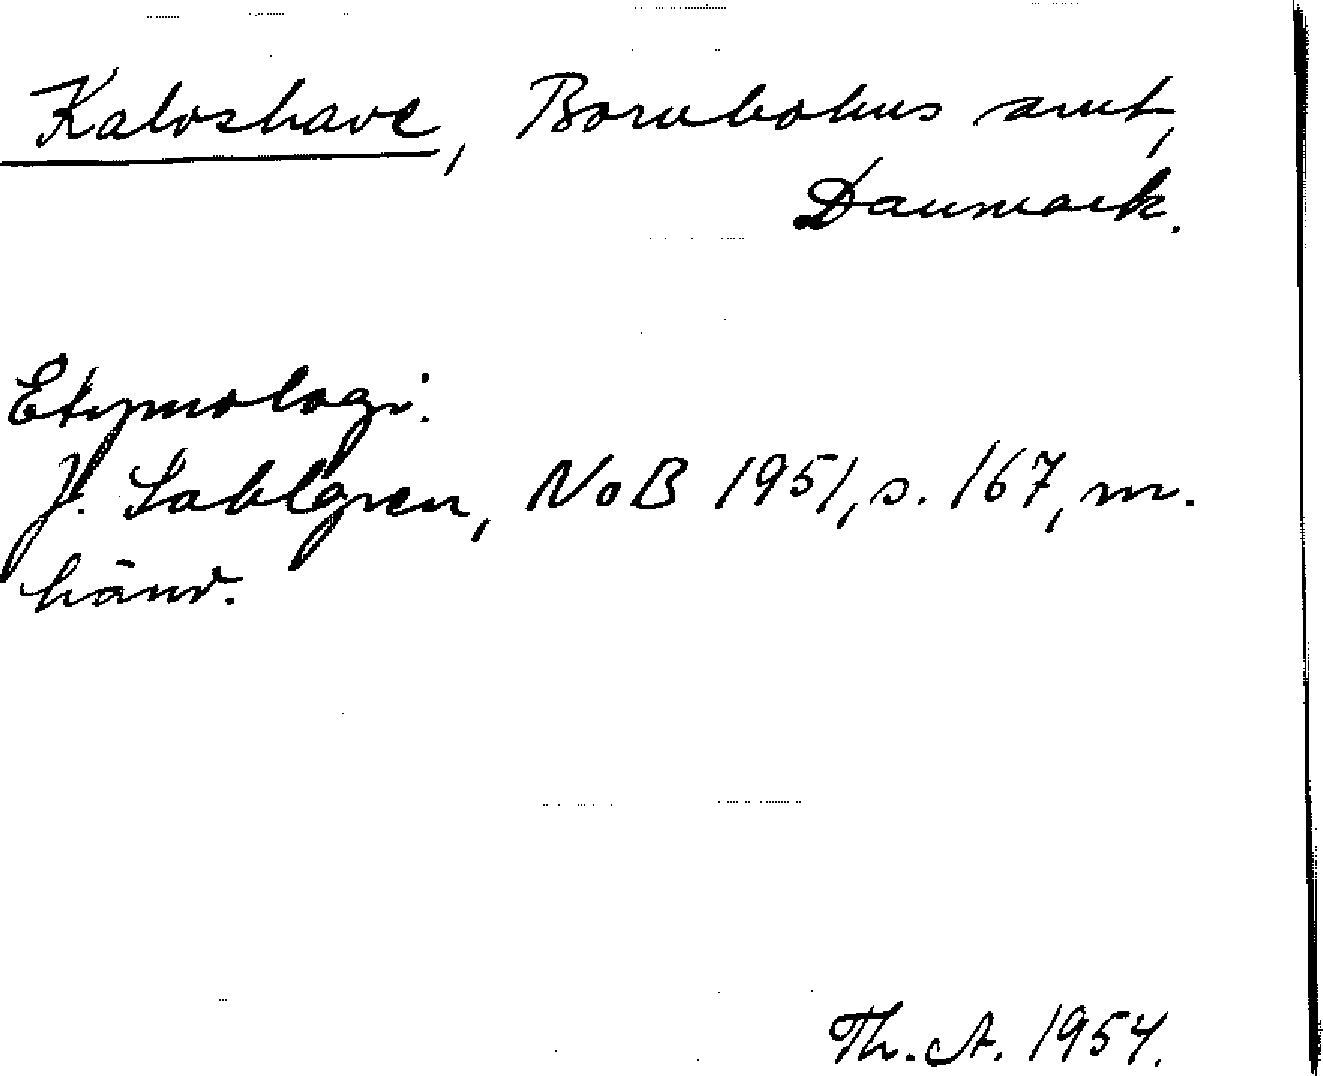 Kalvshave, Bornbohus amt,
Danmark.
Etymologi:
J. Sahlgren, NoB 1951, s. 167, m.
hänv.
Th. A. 1954.